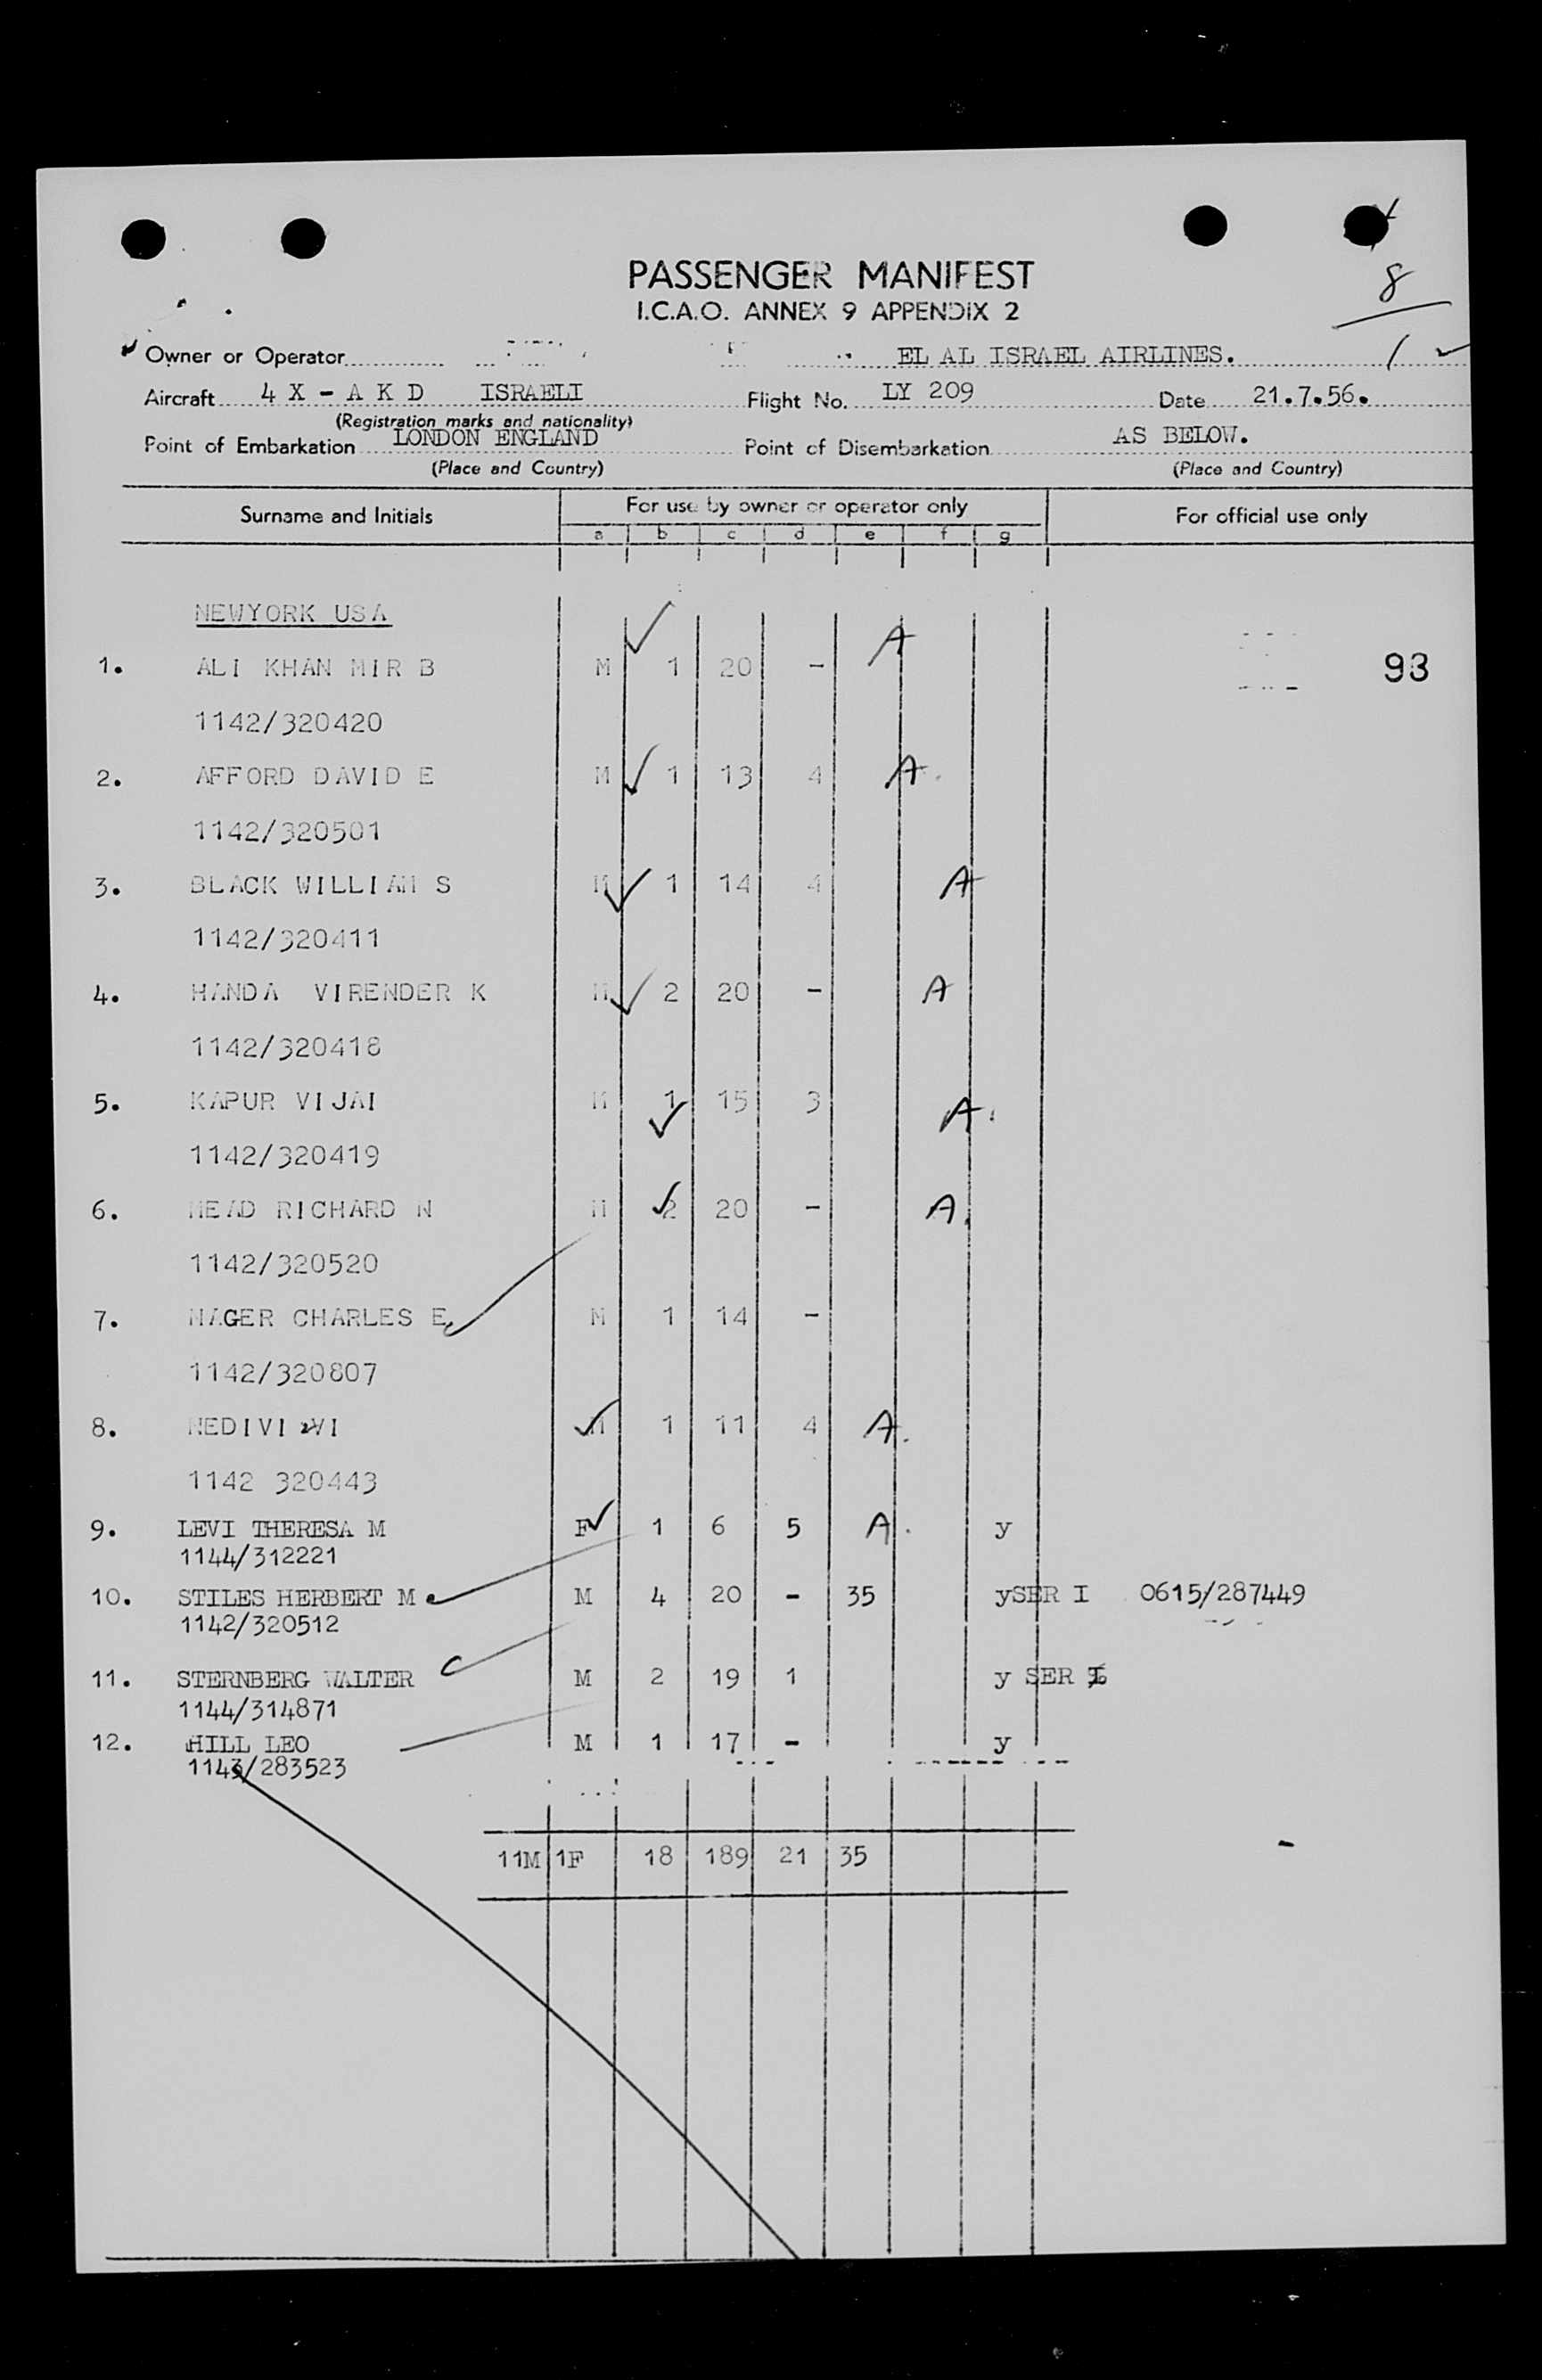 8
PASSENGER MANIFEST
I.C.A.O. ANNEX 9 APPENDIX 2
Owner or Operator EL AL ISRAEL AIRLINES.
Aircraft 4 X - A K D ISRAELI Flight No. LY 209 Date 21.7.56.
(Registration marks and nationality)
Point of Embarkation LONDON ENGLAND Point of Disembarkation AS BELOW.
(Place and Country) (Place and Country)
Surname and Initials For use by owner or operator only For official use only
a b c d e f g
NEWYORK USA
1. ALI KHAN MIR B M 1 20 - A 93
1142/320420
2. AFFORD DAVID E M 1 13 4 A.
1142/320501
3. BLACK WILLIAM S M 1 14 4 A
1142/320411
4. HANDA VIRENDER K M 2 20 - A
1142/320418
5. KAPUR VIJAI M 1 15 3 A.
1142/320419
6. MEAD RICHARD N M 2 20 - A.
1142/320520
7. NAGER CHARLES E M 1 14 -
1142/320807
8. M 1 11 4 A.
1142 320443
9. LEVI THERESA M F 1 6 5 A. y
1144/312221
10. STILES HERBERT M M 4 20 - 35 ySER I 0615/287449
1142/320512
11. STERNBERG WALTER M 2 19 1 y SER
1144/314871
12. HILL LEO M 1 17 - y
1143/283523
11M 1F 18 189 21 35